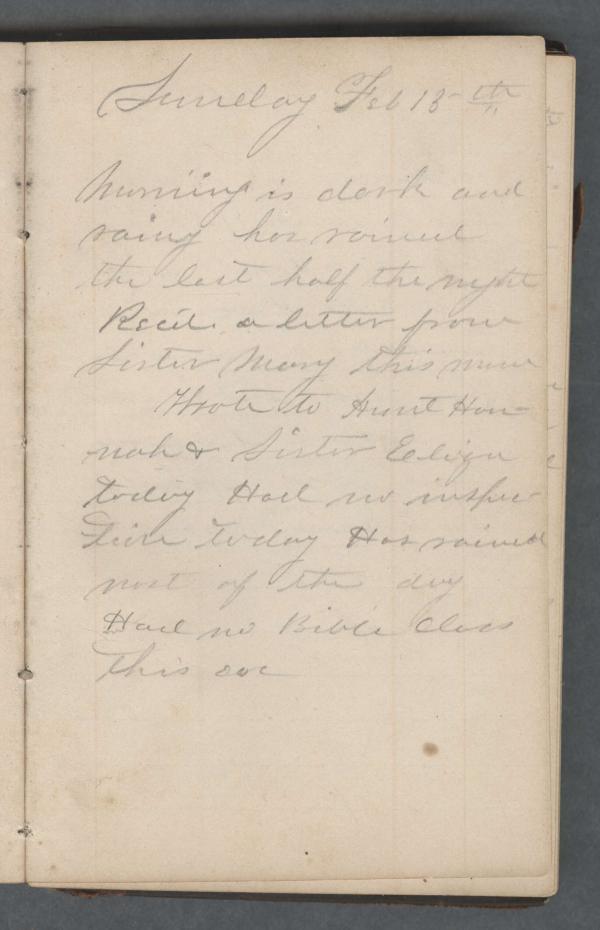 Sunday Feb 15th
Morning is dark and
rainy has rained
the last half the night
Recd. a letter from
Sister Mary this morn
Wrote to Aunt Han-
nah & Sister Eliza
today Had no inspec-
tion today Has rained
most of the day
Had no Bible Class
this eve